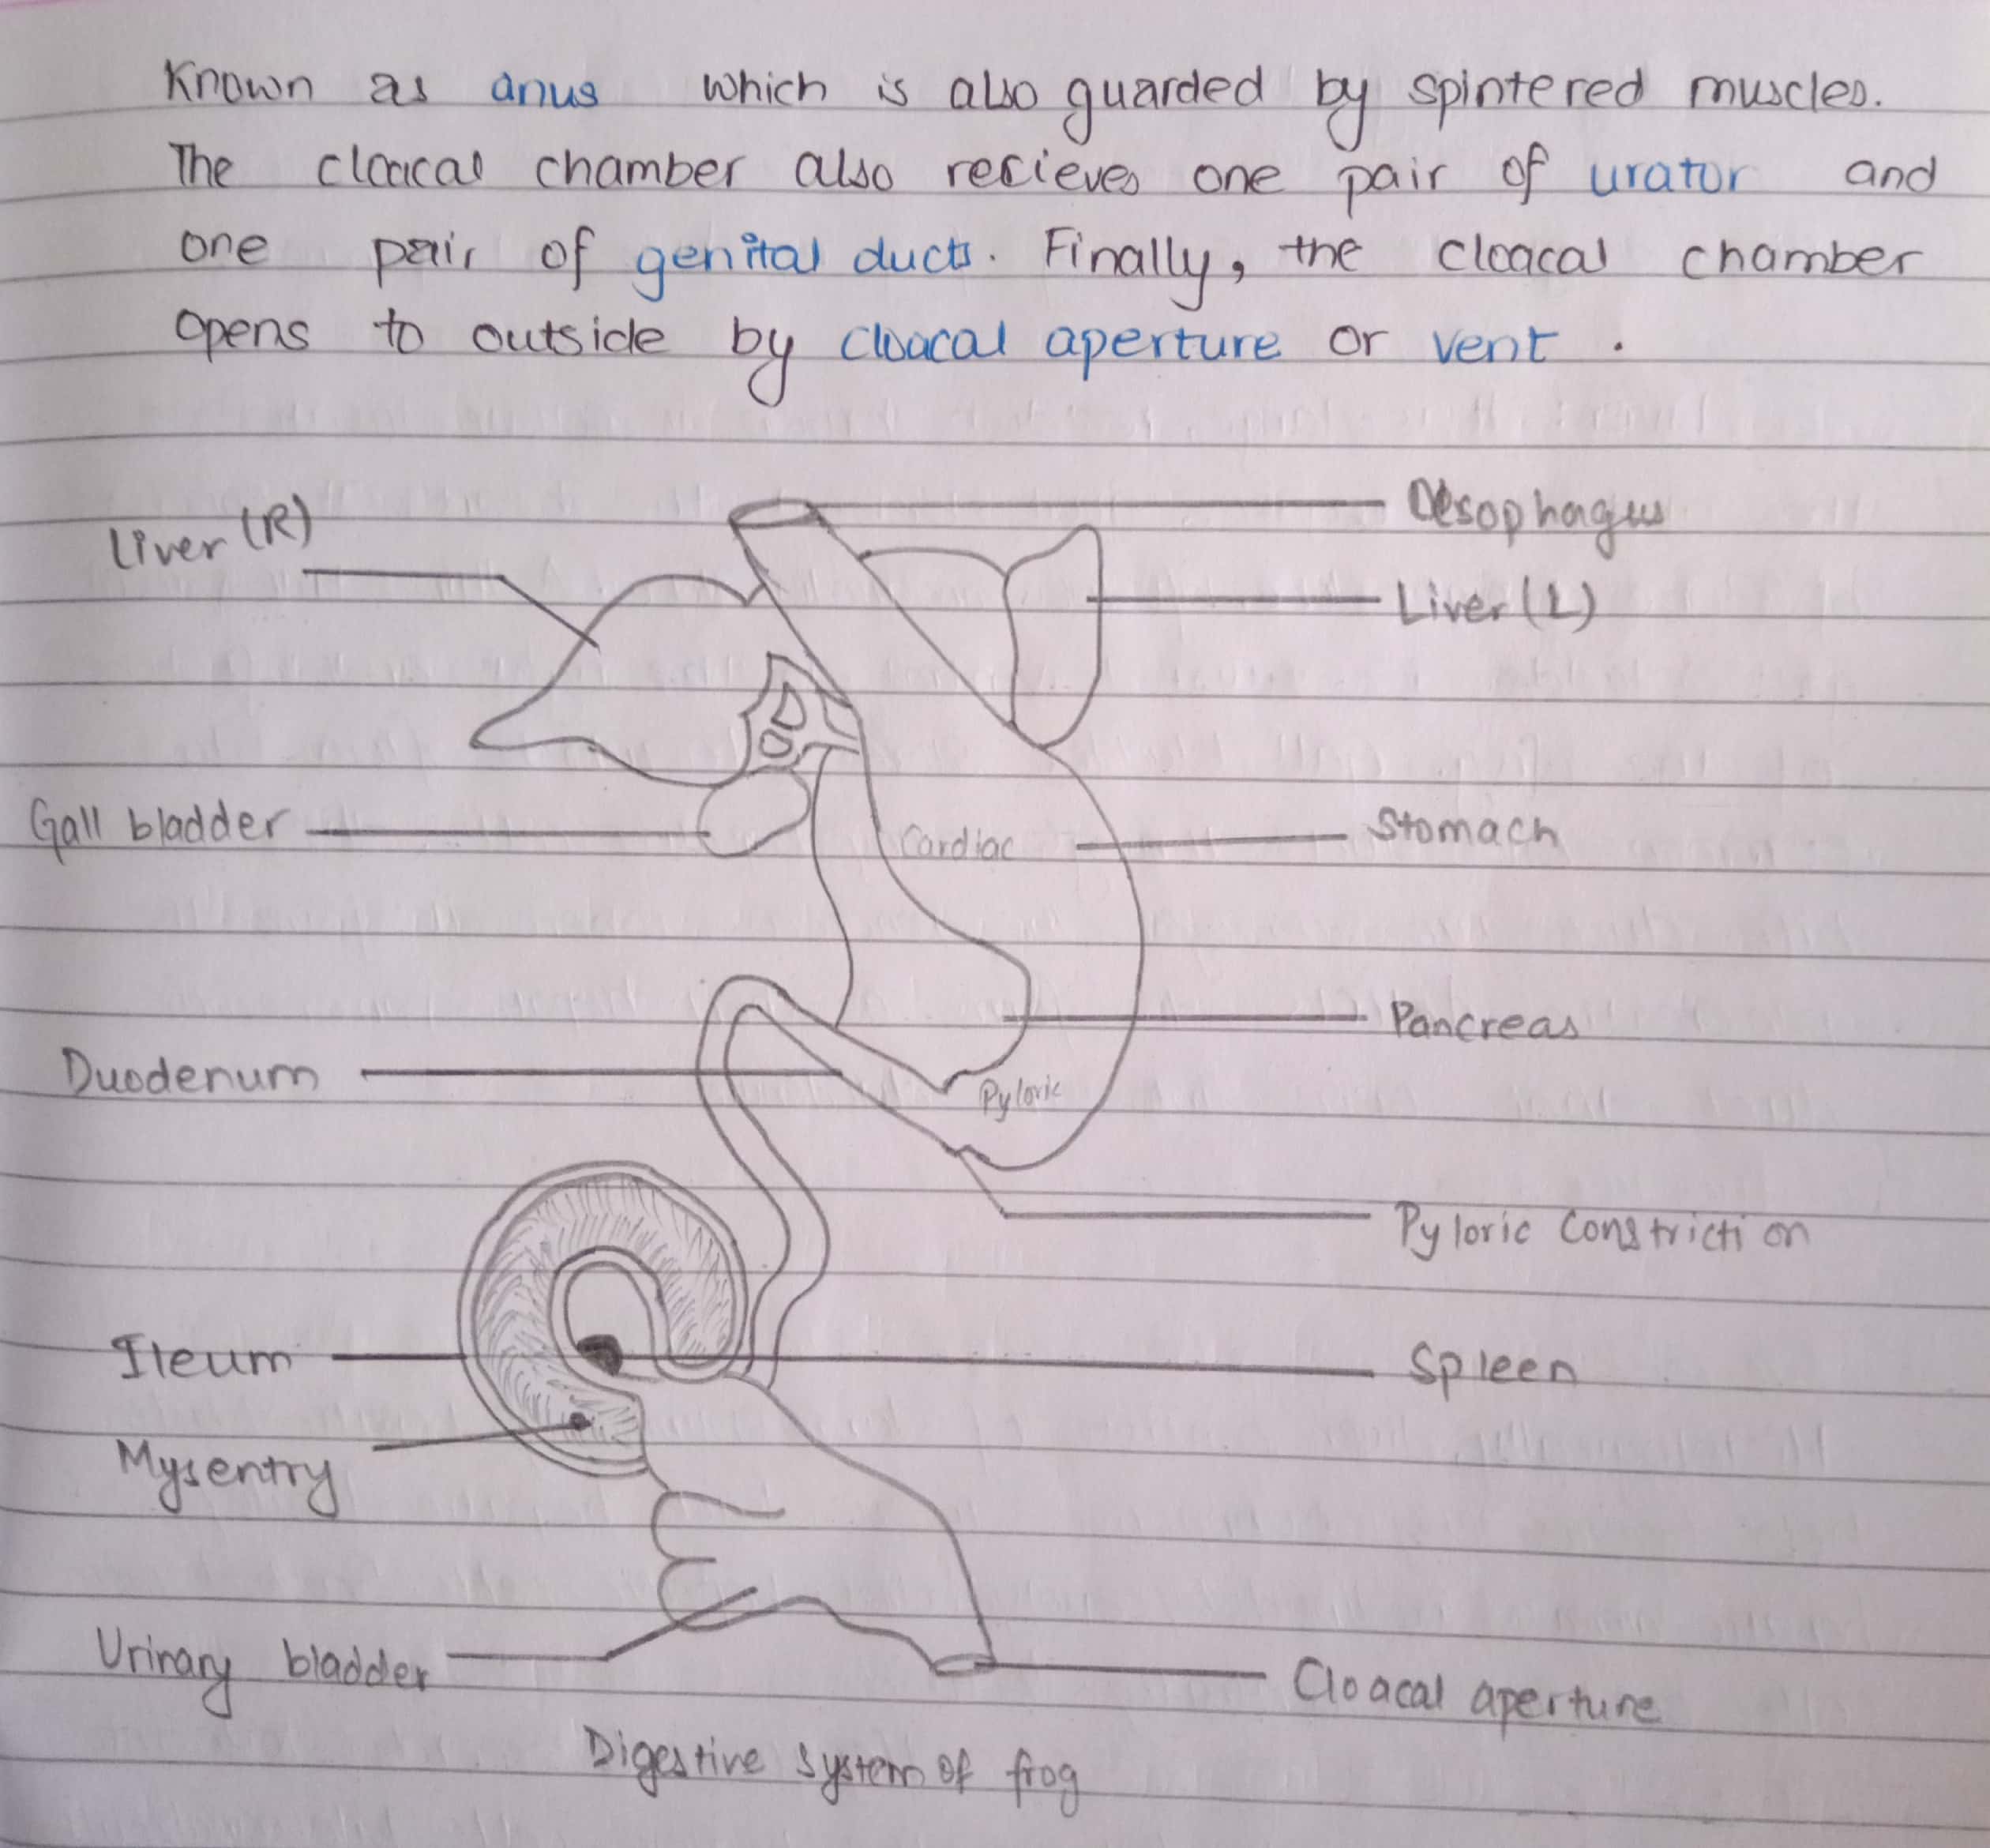 Known as anus which is also guarded by spintered muscles.
The cloacal chamber also recieves one pair of urator and
one pair of genital ducts. Finally, the cloacal chamber
opens to outside by cloacal aperture or vent .
Oesophagus
Liver (R)
Liver (L)
Gall bladder
Cardiac
Stomach
Pancreas
Duodenum
Pyloric
Pyloric Constriction
Ileum
Spleen
Mysentry
Urinary bladder
Cloacal aperture
Digestive system of frog